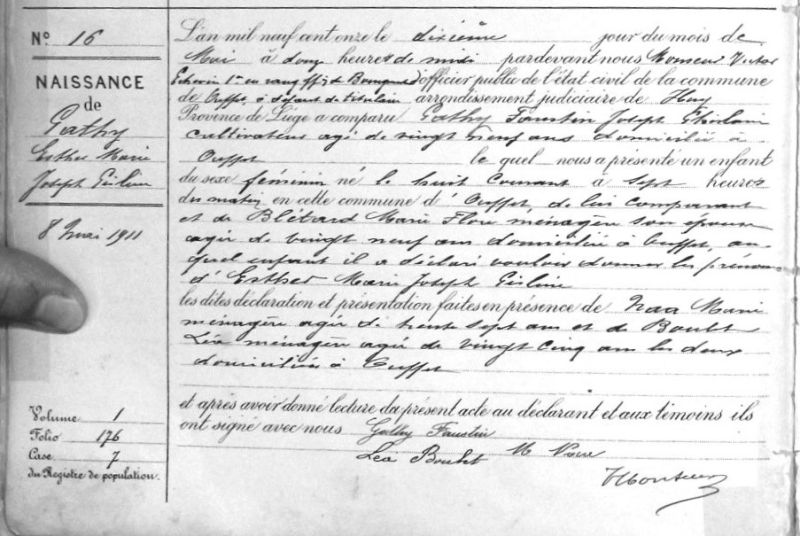 N° 16
NAISSANCE
de
Gathy
Esther Marie
Joseph Gisline
8 Mai 1911
Volume 1
Folio 176
Case 7
du Registre de population.
L'an mil neuf cent onze le dixième jour du mois de
Mai à douze heures de midi pardevant nous Monsieur Victor
Echevin 1er en rang ff de Bourgmestre officier public de l'état civil de la commune
de Ouffet, à défaut de titulaire arrondissement judiciaire de Huy
Province de Liége a comparu Gathy Faustin Joseph Ghislain
cultivateur agé de vingt neuf ans domicilié à
Ouffet le quel nous a présenté un enfant
du sexe féminin né le huit courant à sept heures
du matin en celle commune d'Ouffet, de lui comparant
et de Blétard Marie Flore ménagère son épouse
agée de vingt neuf ans domiciliée à Ouffet, au
quel enfant il a déclaré vouloir donner les prénoms
d'Esther Marie Joseph Gisline
les dites déclaration et présentation faites en présence de Marie
ménagère agée de trente sept ans et de Boulet
Léa ménagère agée de vingt cinq ans les deux
domiciliées à Ouffet
et après avoir donné lecture du présent acte au déclarant et aux témoins ils
ont signé avec nous Gathy Faustin
Léa Boulet M